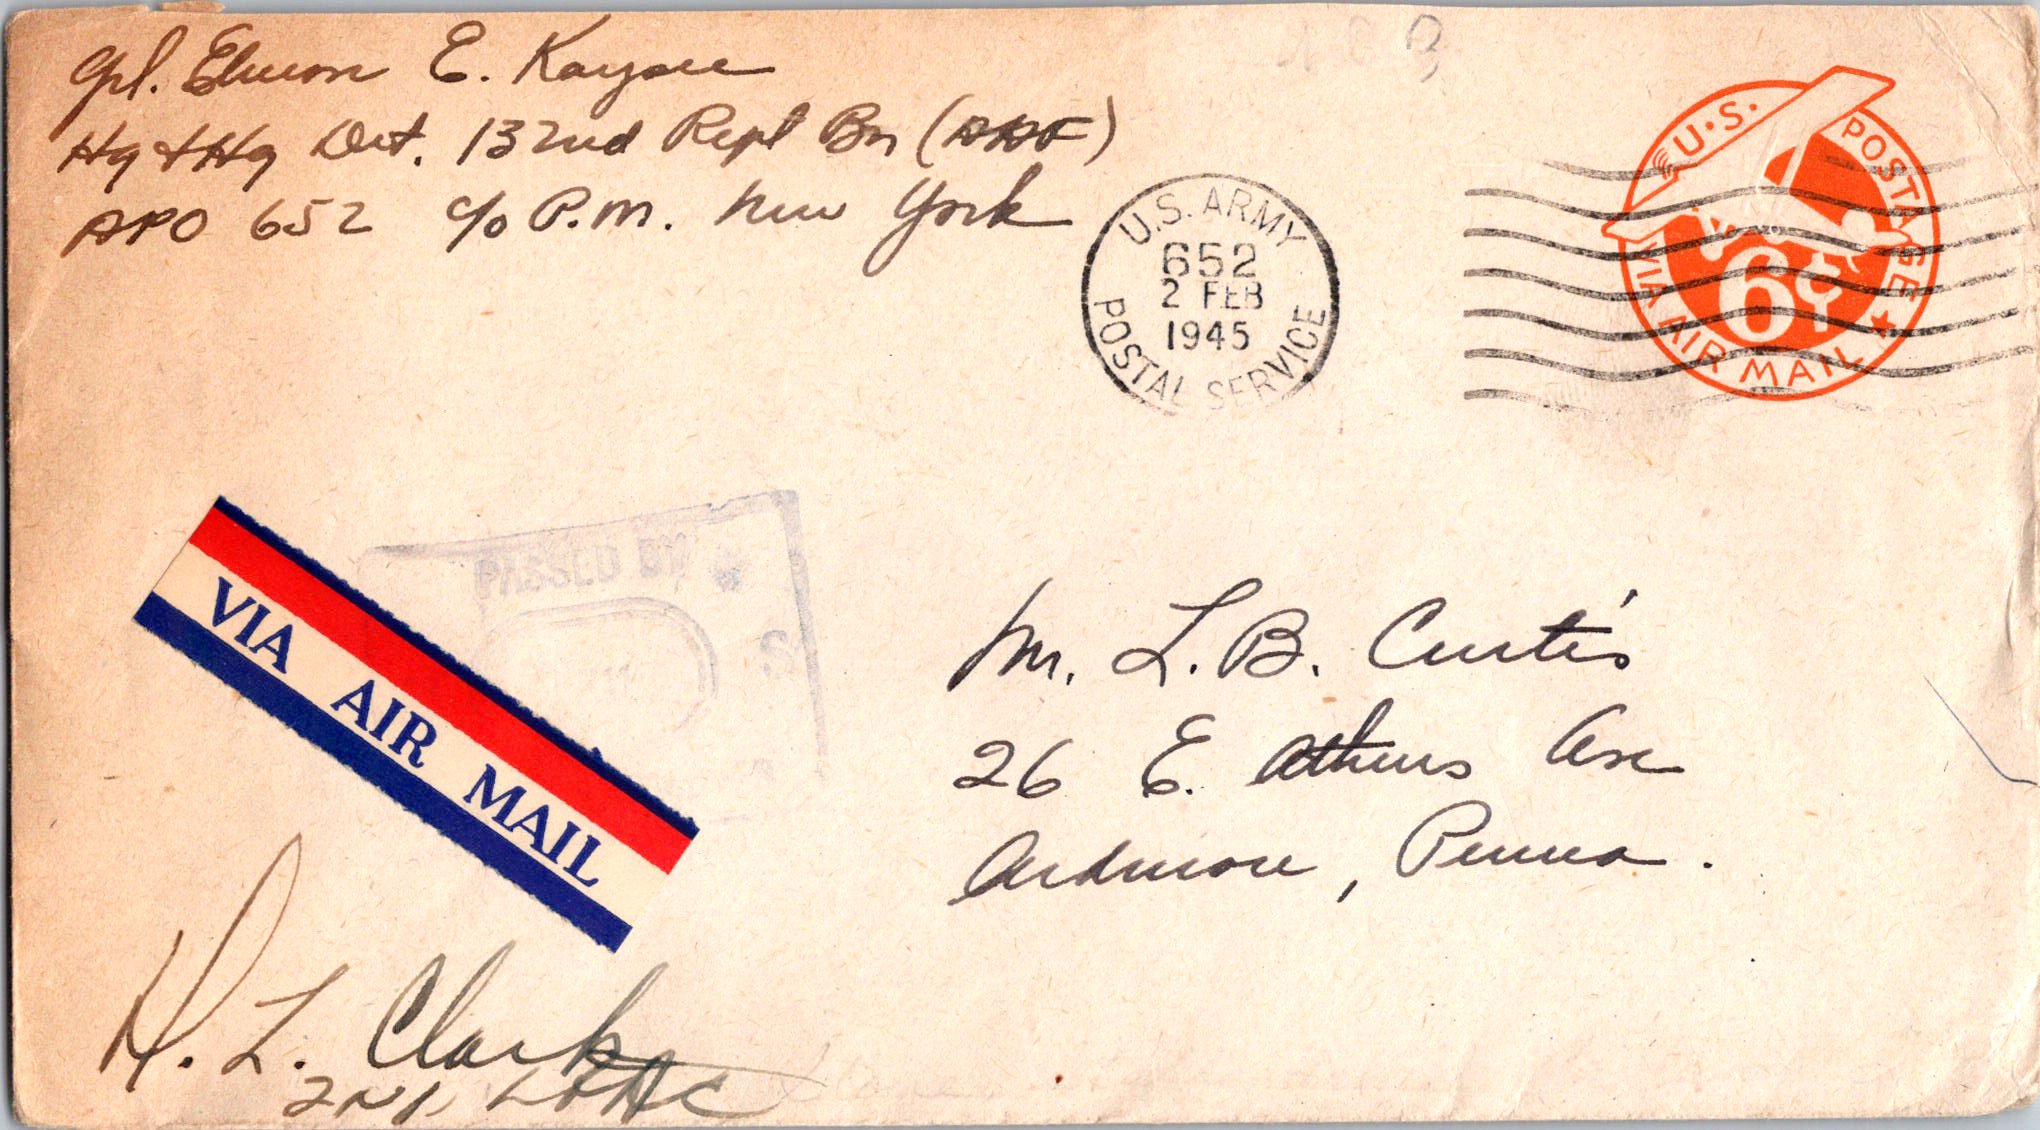 Cpl. Elwson E. Kaysee
Hq & Hq Det. 132nd Repl Bn (AAF)
APO 652 c/o P.M. New York
U.S. ARMY
652
2 FEB
1945
POSTAL SERVICE
U.S. POSTAGE
6¢
VIA AIR MAIL
PASSED BY
S
VIA AIR MAIL
Mr. L. B. Curtis
26 E. Athens Ave
Ardmore, Penna.
H. L. Clark
2ND. Lt. AC